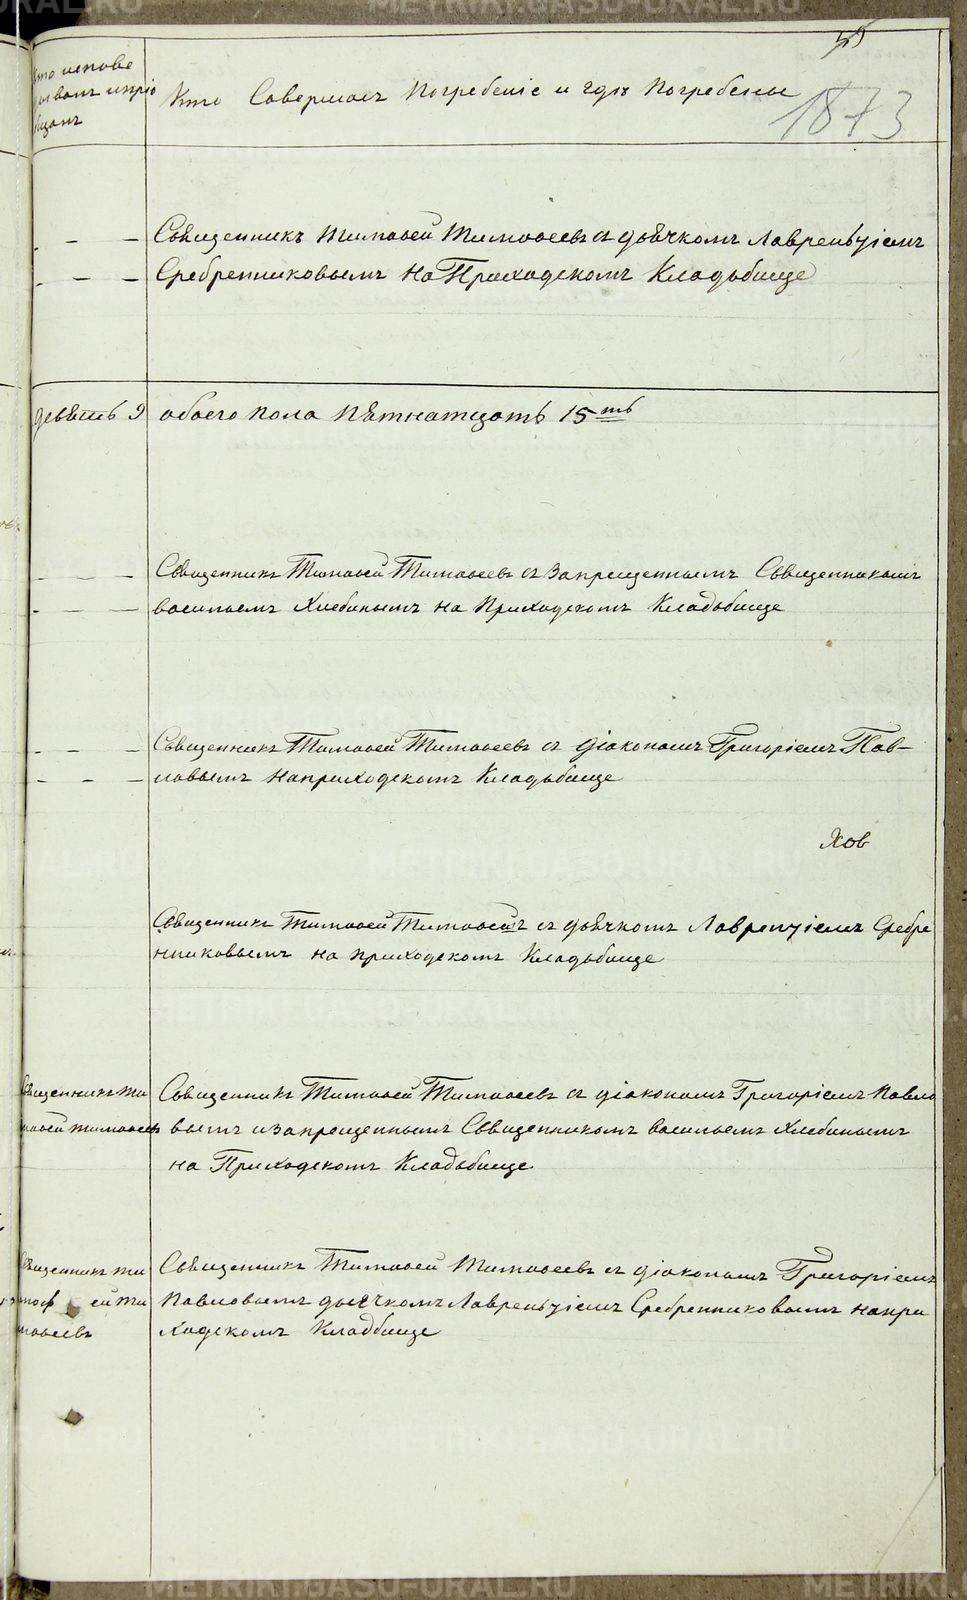 Кто испове
довалъ и прiо
бщалъ
Кто Совершалъ Погребенiе и гдѣ Погребены
1873
Священникъ Тимоѳей Тимоѳеевъ съ дьячкомъ Лаврентiемъ
Сребренниковымъ На Приходскомъ Кладьбище
девять 9 обоего пола пятнатцать 15ть
Священникъ Тимоѳей Тимоѳеевъ съ Запрещеннымъ Священникомъ
васильемъ Хлебинымъ на Приходскомъ Кладьбище
Священникъ Тимоѳей Тимоѳеевъ съ дiакономъ Григорiемъ Пав-
ловымъ наприходскомъ Кладьбище
Священникъ Тимоѳей Тимоѳеевъ съ дьячкомъ Лаврентiемъ Сребре
нниковымъ на приходскомъ Кладьбище
Священникъ Ти
моѳей Тимоѳеевъ
Священникъ Тимоѳей Тимоѳеевъ съ дiакономъ Григорiемъ Павло
вымъ изапрещеннымъ Священникомъ васильемъ Хлебинымъ
на Приходскомъ Кладьбище
Священникъ Ти
моф ей Ти
моѳеевъ
Священникъ Тимоѳей Тимоѳеевъ съ дiакономъ Григорiемъ
Павловымъ дьячкомъ Лаврентьiемъ Сребренниковымъ напри
ходскомъ Кладбище
METRIKI.GASO-URAL.RU